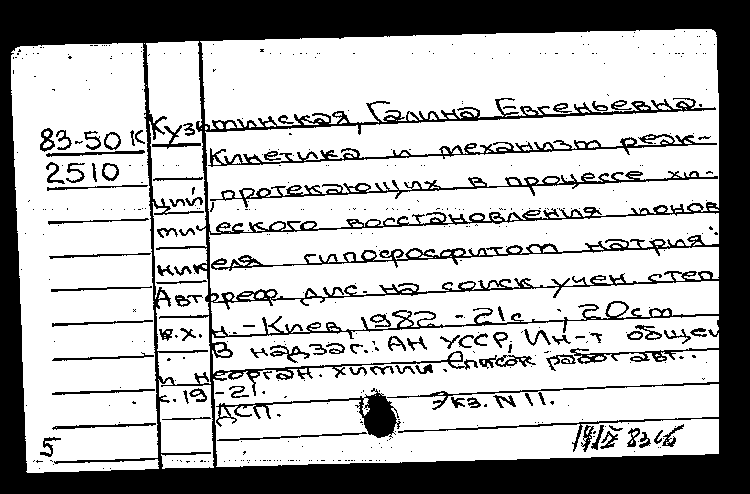 83-50 К
2510
Кузьминская, Галина Евгеньевна.
Кинетика и механизм реак-
ций, протекающих в процессе хи-
мического восстановления ионов
никеля гипофосфитом натрия:
Автореф. дис. на соиск. учен. степ
к.х.н. - Киев, 1982. - 21с. ; 20см
В надзаг.: АН УССР, Ин-т общей
и неорган. химии. Список работ авт.:
с. 19-21.
ДСП. Экз. N 11.
5